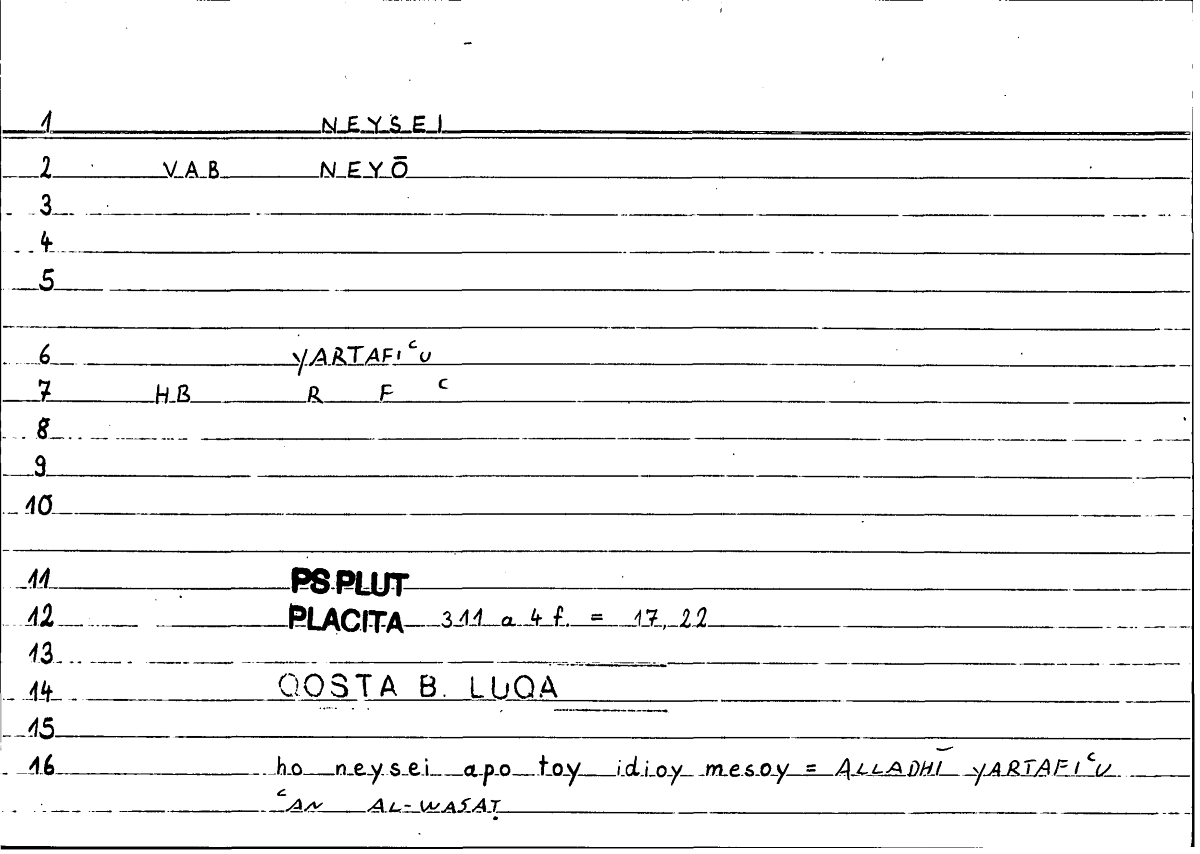 1 NEYSEI
2 VAB NEYŌ
3
4
5
6 YARTAFIᶜU
7 HB R F ᶜ
8
9
10
11 PS.PLUT
12 PLACITA 311 a 4 f. = 17, 22
13
14 QOSTA B. LUQA
15
16 ho neysei apo toy idioy mesoy = ALLADHĪ YARTAFIᶜU
ᶜAN AL-WASAṬ